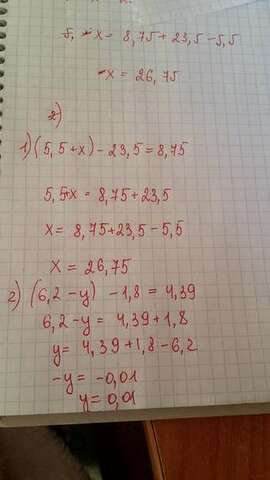 5, x = 8,75 + 23,5 - 5,5
-x = 26,75
2)
1) (5,5+x) - 23,5 = 8,75
5,5+x = 8,75+23,5
x = 8,75+23,5 - 5,5
x = 26,75
2) (6,2 - y) - 1,8 = 4,39
6,2 - y = 4,39+1,8
y = 4,39+1,8 - 6,2
-y = -0,01
y = 0,01